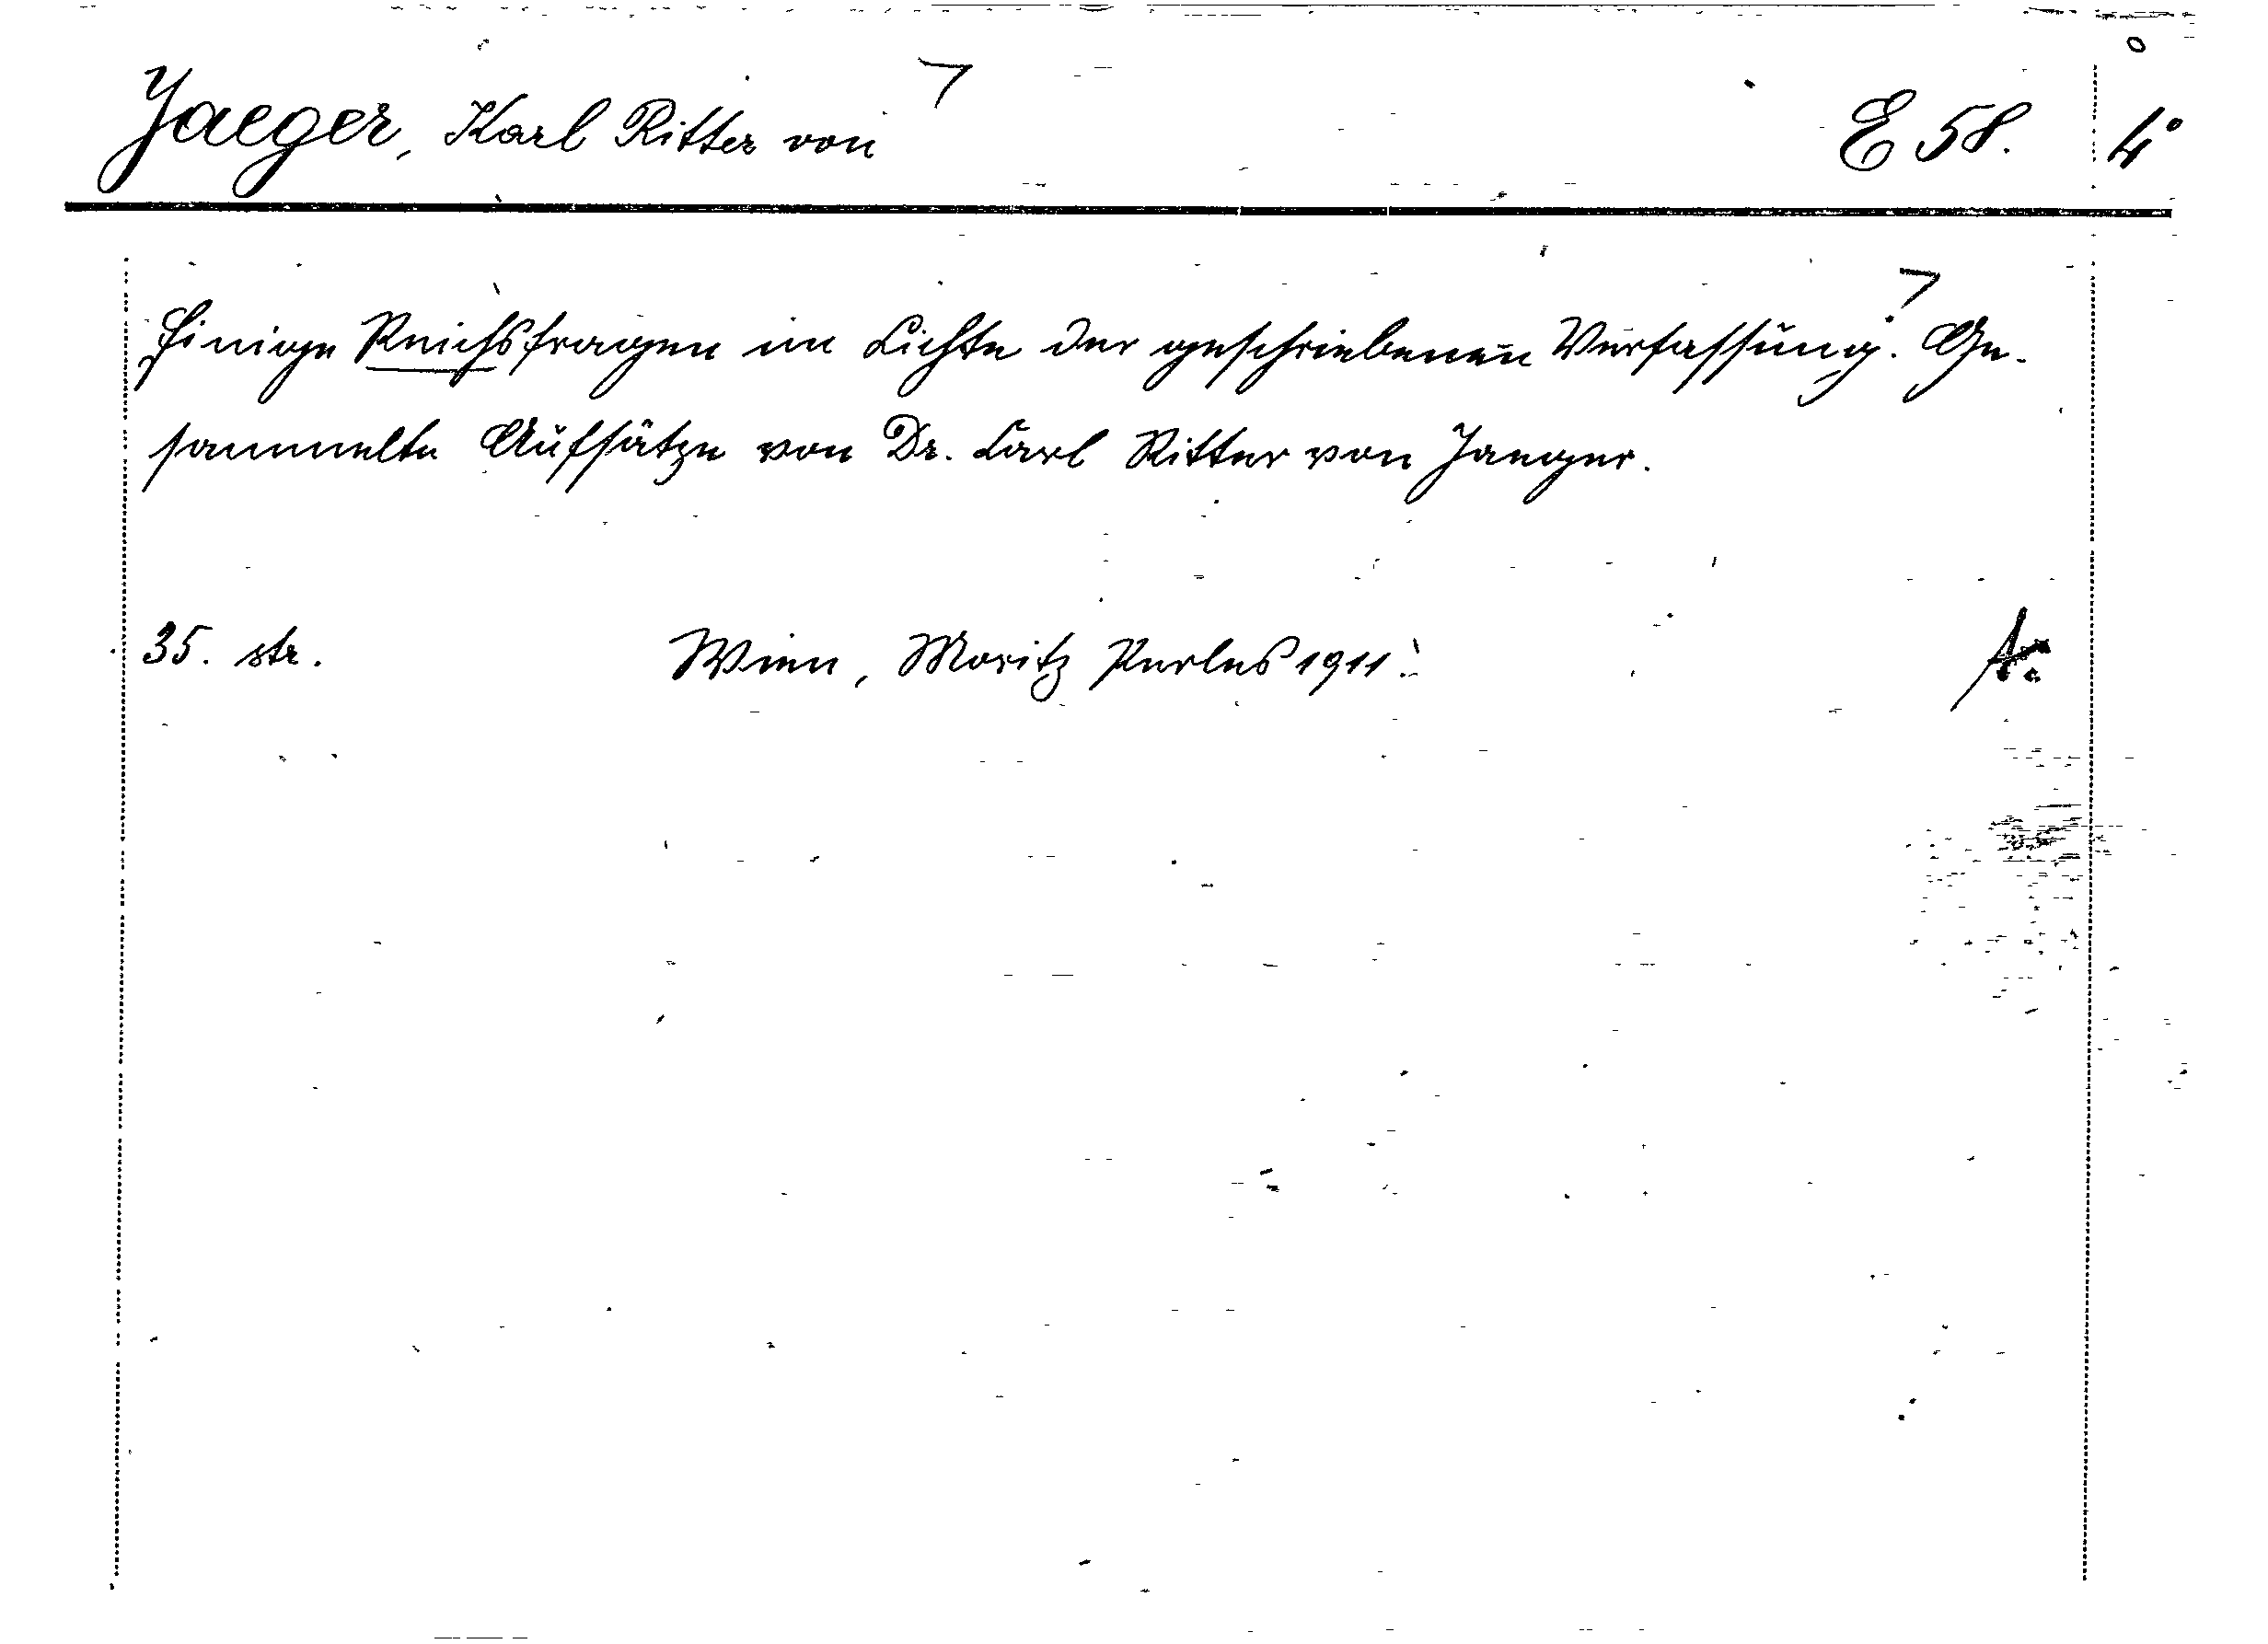 Jaeger, Karl Ritter von E 58. 4°
Einige Reichsfragen im Lichte der geschriebenen Verfassung. Ge-
sammelte Aufsätze von Dr. Carl Ritter von Jaeger.
35. str. Wien, Moritz Perles 1911.